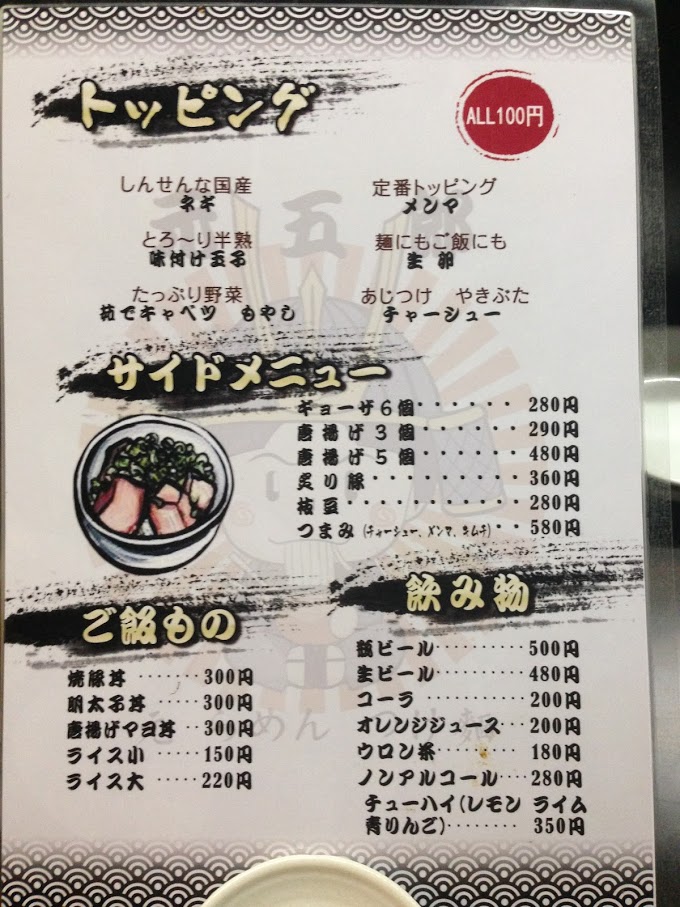 トッピング
ALL100円
しんせんな国産
ネギ
定番トッピング
メンマ
とろ〜り半熟
味付け玉子
麺にもご飯にも
生卵
たっぷり野菜
茹でキャベツ もやし
あじつけ やきぶた
チャーシュー
サイドメニュー
ギョーザ6個・・・・・・ 280円
唐揚げ3個・・・・・・ 290円
唐揚げ5個・・・・・・ 480円
炙り豚・・・・・・・・・ 360円
枝豆・・・・・・・・・・ 280円
つまみ(チャーシュー、メンマ、キムチ)・・ 580円
ご飯もの
焼豚丼 ・・・・・・・300円
明太子丼 ・・・・・・300円
唐揚げマヨ丼 ・・300円
ライス小 ・・・・・150円
ライス大 ・・・・・220円
飲み物
瓶ビール・・・・・・・・・・500円
生ビール・・・・・・・・・・480円
コーラ・・・・・・・・・・・・200円
オレンジジュース・・・200円
ウロン茶・・・・・・・・・・180円
ノンアルコール・・・・280円
チューハイ(レモン ライム
青りんご)・・・・・・・・ 350円